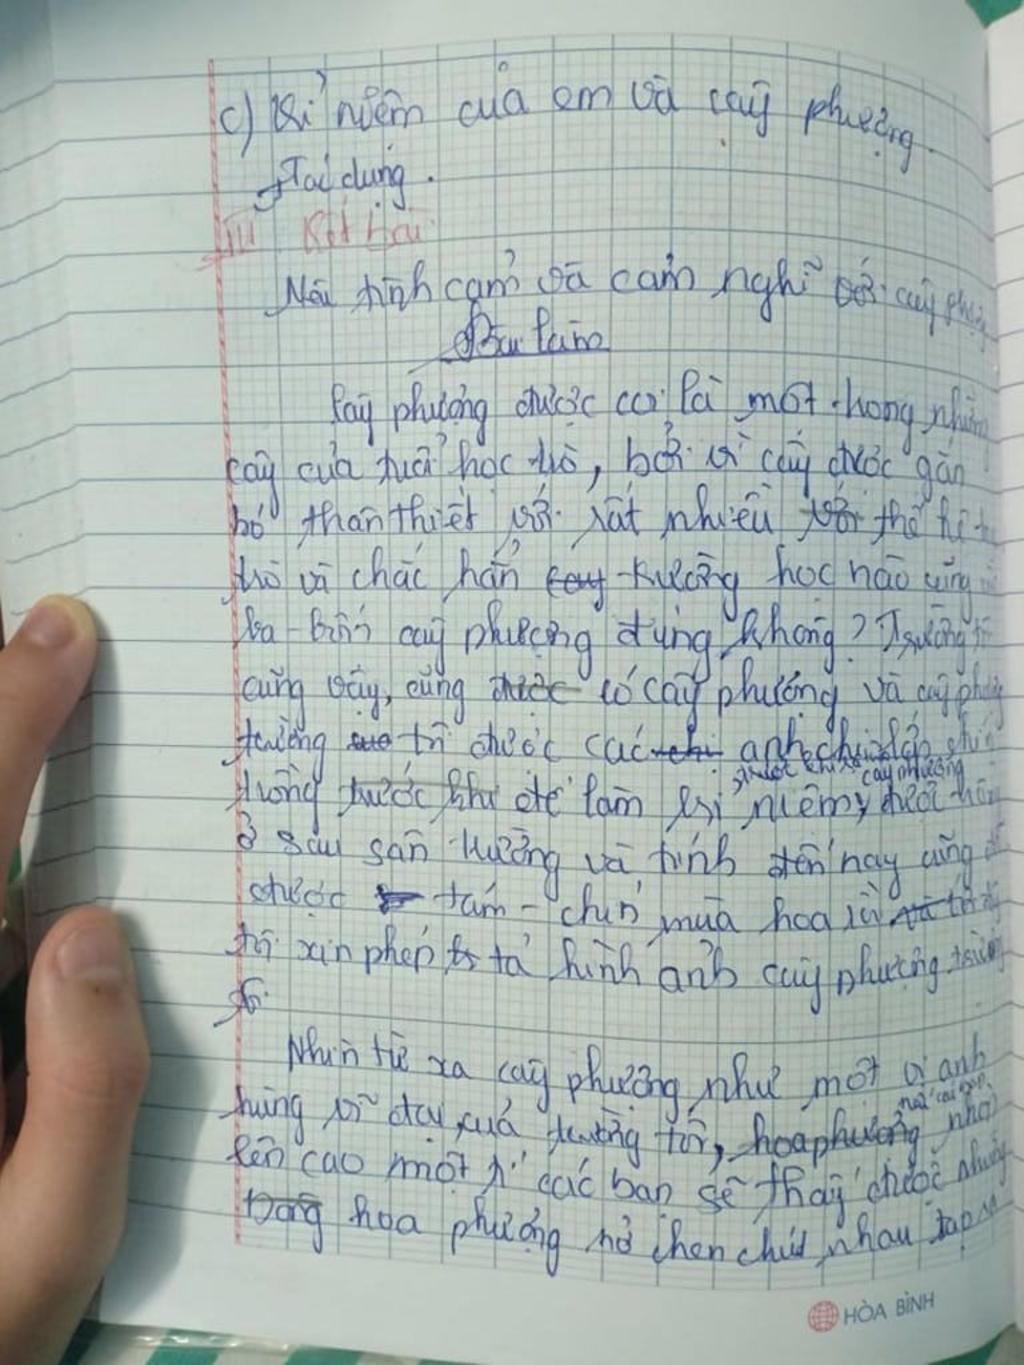 c) Kỉ niệm của em và cây phượng.
Tác dụng.
III Kết bài
Nêu tình cảm và cảm nghĩ với cây
Bài làm
Cây phượng được coi là một trong những
cây của tuổi học trò, bởi vì cây được gắn
bó thân thiết với rất nhiều thế hệ
trò và chắc hẳn trường học nào cũng
ba - bốn cây phượng đúng không? Trường
cũng vậy, cũng có cây phượng và cây
trường được các anh chị
trồng trước khi để làm kỉ niệm,
cây phượng
ở sau sân trường và tính đến nay cũng
được tám - chín mùa hoa rồi
xin phép tả hình ảnh cây phượng trường
Nhìn từ xa cây phượng như một vị anh
hùng vĩ đại của trường tôi, hoa phượng
lên cao một tí các bạn sẽ thấy được những
hoa phượng nở chen chút nhau
HÒA BÌNH